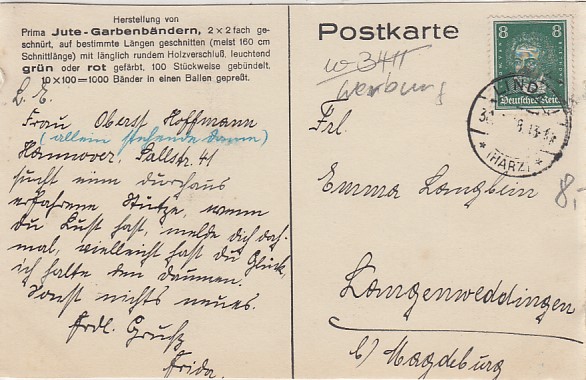 Herstellung von
Prima Jute-Garbenbändern, 2×2 fach ge-
schnürt, auf bestimmte Längen geschnitten (meist 160 cm
Schnittlänge) mit länglich rundem Holzverschluß, leuchtend
grün oder rot gefärbt, 100 Stückweise gebündelt.
10×100=1000 Bänder in einen Ballen gepreßt.
L. E.
Frau Oberst Hoffmann
(allein stehende Dame)
Hannover, Sallstr. 41
sucht eine durchaus
erfahrene Stütze, wenn
du Lust hast, melde dich doch
mal, vielleicht hast du Glück,
ich halte den Daumen.
Sonst nichts neues.
Frdl. Gruß
Frida.
Postkarte
w 3411
Werbung
8 8
Deutsches Reich
LIND
(HARZ)
8,-
Frl.
Emma
Langenweddingen
b/ Magdeburg